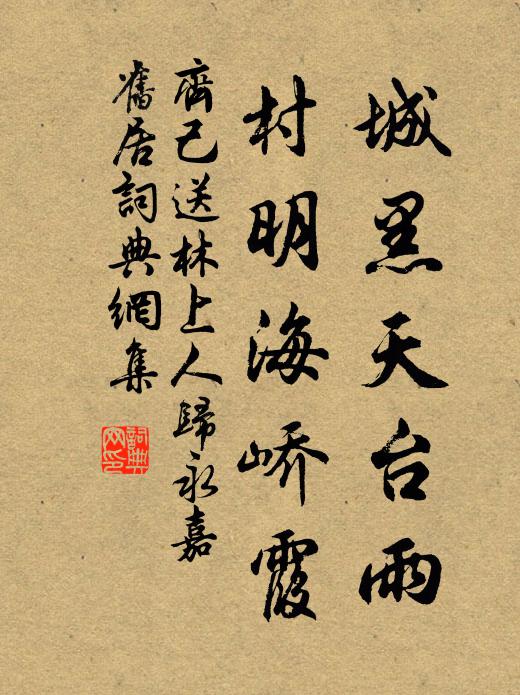 城黑天台雨
村明海嶠霞
齊己送林上人歸永嘉
舊居詞典網集
詞典
网印